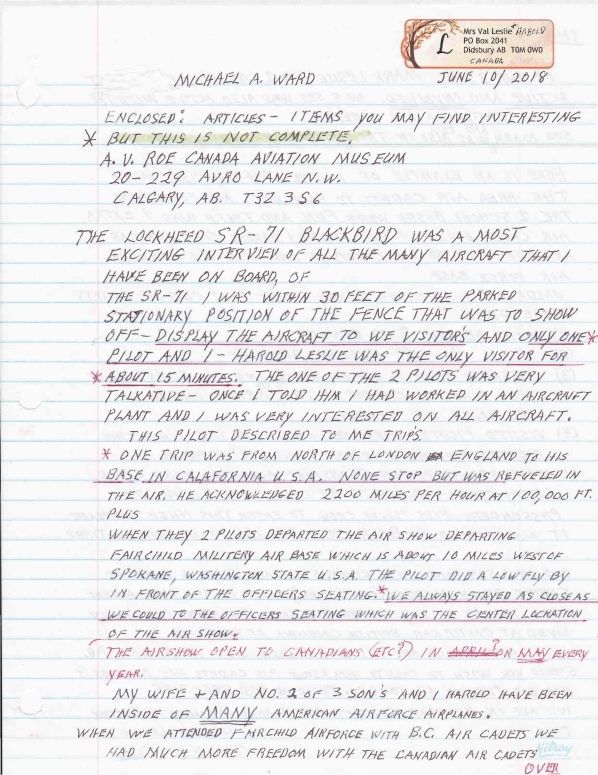 Mrs Val Leslie + HAROLD
PO Box 2041
Didsbury AB T0M 0W0
CANADA
L
MICHAEL A. WARD JUNE 10/2018
ENCLOSED: ARTICLES - ITEMS YOU MAY FIND INTERESTING
* BUT THIS IS NOT COMPLETE.
A. V. ROE CANADA AVIATION MUSEUM
20-229 AVRO LANE N.W.
CALGARY, AB. T3Z 3S6
THE LOCKHEED SR-71 BLACKBIRD WAS A MOST
EXCITING INTERVIEV OF ALL THE MANY AIRCRAFT THAT I
HAVE BEEN ON BOARD, OF
THE SR-71 I WAS WITHIN 30 FEET OF THE PARKED
STATIONARY POSITION OF THE FENCE THAT WAS TO SHOW
OFF - DISPLAY THE AIRCRAFT TO WE VISITOR'S AND ONLY ONE *
PILOT AND I - HAROLD LESLIE WAS THE ONLY VISITOR FOR
* ABOUT 15 MINUTES. THE ONE OF THE 2 PILOTS WAS VERY
TALKATIVE - ONCE I TOLD HIM I HAD WORKED IN AN AIRCRAFT
PLANT AND I WAS VERY INTERESTED ON ALL AIRCRAFT.
THIS PILOT DESCRIBED TO ME TRIPS,
* ONE TRIP WAS FROM NORTH OF LONDON ENGLAND TO HIS
BASE IN CALAFORNIA U.S.A. NONE STOP BUT WAS REFUELED IN
THE AIR. HE ACKNOWLEDGED 2200 MILES PER HOUR AT 100,000 FT.
PLUS
WHEN THEY 2 PILOTS DEPARTED THE AIR SHOW DEPARTING
FAIRCHILD MILITERY AIR BASE WHICH IS ABOUT 10 MILES WEST OF
SPOKANE, WASHINGTON STATE U.S.A. THE PILOT DID A LOW FLY BY
IN FRONT OF THE OFFICERS SEATING. * WE ALWAYS STAYED AS CLOSE AS
WE COULD TO THE OFFICERS SEATING WHICH WAS THE CENTER LOCKATION
OF THE AIR SHOW.
THE AIRSHOW OPEN TO CANADIANS (ETC?) IN APRIL? OR MAY EVERY
YEAR.
MY WIFE + AND NO. 2 OF 3 SON'S AND I HAROLD HAVE BEEN
INSIDE OF MANY AMERICAN AIRFORCE AIRPLANES.
WHEN WE ATTENDED FAIRCHILD AIRFORCE WITH B.C. AIR CADETS WE
HAD MUCH MORE FREEDOM WITH THE CANADIAN AIR CADETS
Hilroy
OVER